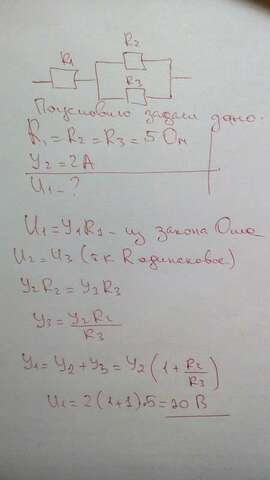 R₁
R₂
R₃
По условию задачи дано:
R₁ = R₂ = R₃ = 5 Ом
У₂ = 2А
U₁ - ?
U₁ = У₁R₁ - из закона Ома
U₂ = U₃ (т.к R одинаковое)
У₂R₂ = У₃R₃
У₃ = У₂R₂ / R₃
У₁ = У₂ + У₃ = У₂ (1 + R₂/R₃)
U₁ = 2(1+1)·5 = 20 В